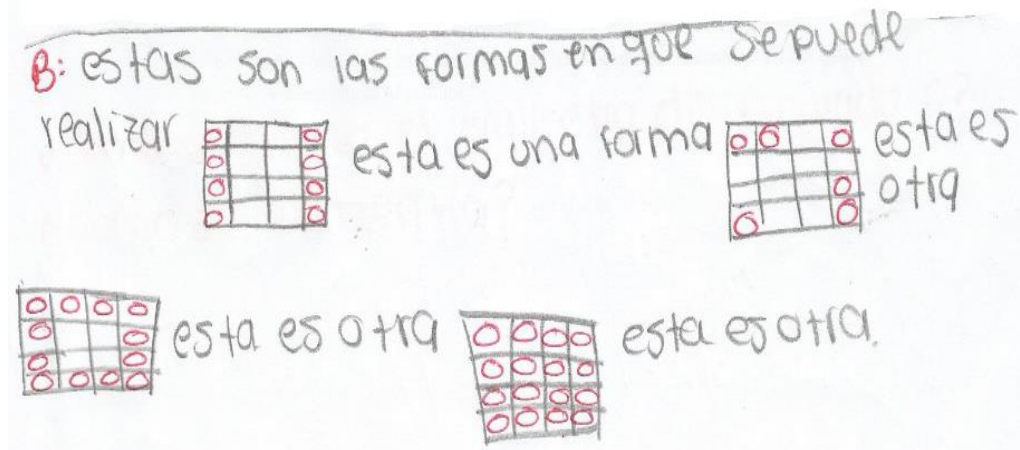 B: estas son las formas en que se puede
realizar esta es una forma esta es
otra
esta es otra esta es otra.